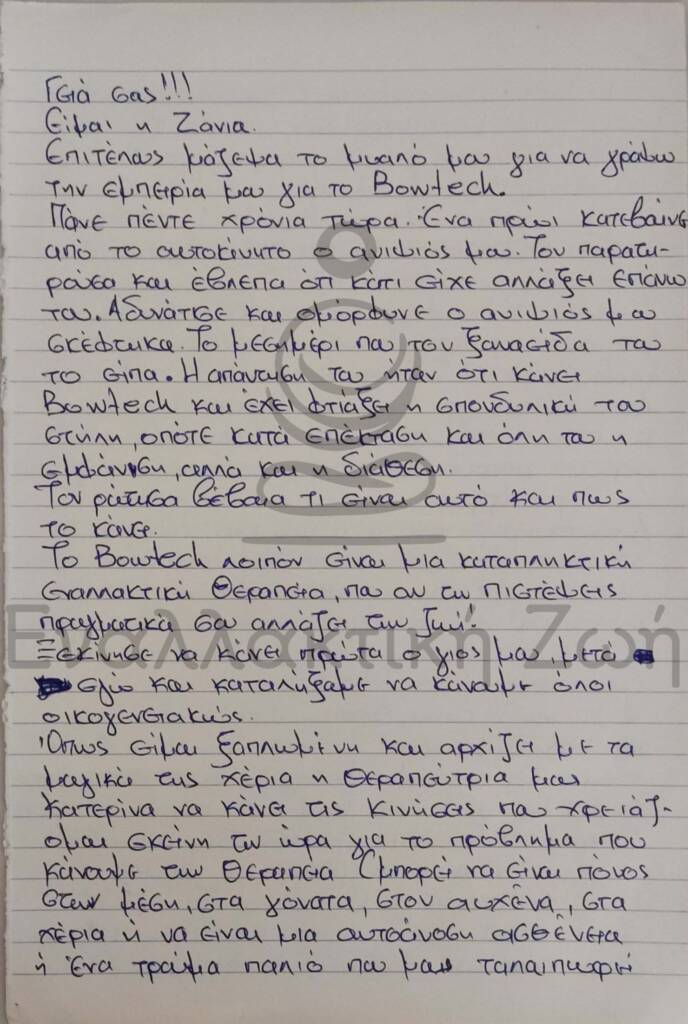 Γειά σας!!!
Είμαι η Ζάνια.
Επιτέλους μάζεψα το μυαλό μου για να γράψω
την εμπειρία μου για το Bowtech.
Πάνε πέντε χρόνια τώρα. Ένα πρωί κατεβαίνε
από το αυτοκίνητο ο ανιψιός μου. Τον παρατη-
ρούσα και έβλεπα ότι κάτι είχε αλλάξει επάνω
του. Αδυνάτισε και ομόρφυνε ο ανιψιός μου
σκέφτηκα. Το μεσημέρι που τον ξαναείδα του
το είπα. Η απάντηση του ήταν ότι κάνει
Bowtech και έχει φτιάξει η σπονδυλική του
στήλη, οπότε κατά επέκταση και όλη του η
εμφάνιση, αλλά και η διάθεση.
Τον ρώτησα βέβαια τι είναι αυτό και πως
το κάνει.
Το Bowtech λοιπόν είναι μια καταπληκτική
εναλλακτική θεραπεία, που αν τη πιστέψεις
πραγματικά σου αλλάζει την ζωή!
Εναλλακτική Ζωή
Ξεκίνησε να κάνει πρώτα ο γιος μου, μετά
εγώ και καταλήξαμε να κάνουμε όλοι
οικογενειακώς.
Όπως είμαι ξαπλωμένη και αρχίζει με τα
μαγικά της χέρια η θεραπεύτρια μας
Κατερίνα να κάνει τις κινήσεις που χρειάζ-
ομαι εκείνη την ώρα για το πρόβλημα που
κάνουμε την θεραπεία (μπορεί να είναι πόνος
στην μέση, στα γόνατα, στον αυχένα, στα
χέρια ή να είναι μια αυτοάνοση ασθένεια
ή ένα τραύμα παλιό που μας ταλαιπωρεί